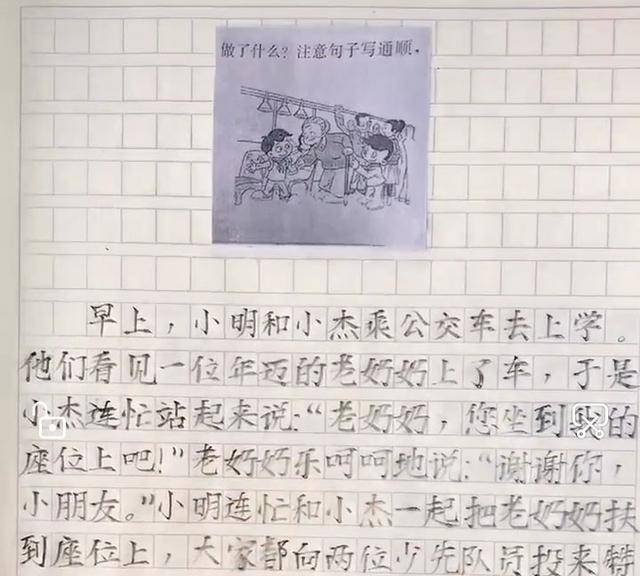 做了什么？注意句子写通顺。
早上，小明和小杰乘公交车去上学。
他们看见一位年迈的老奶奶上了车，于是
小杰连忙站起来说：“老奶奶，您坐到我的
座位上吧！”老奶奶乐呵呵地说：“谢谢你，
小朋友。”小明连忙和小杰一起把老奶奶扶
到座位上，大家都向两位少先队员投来特